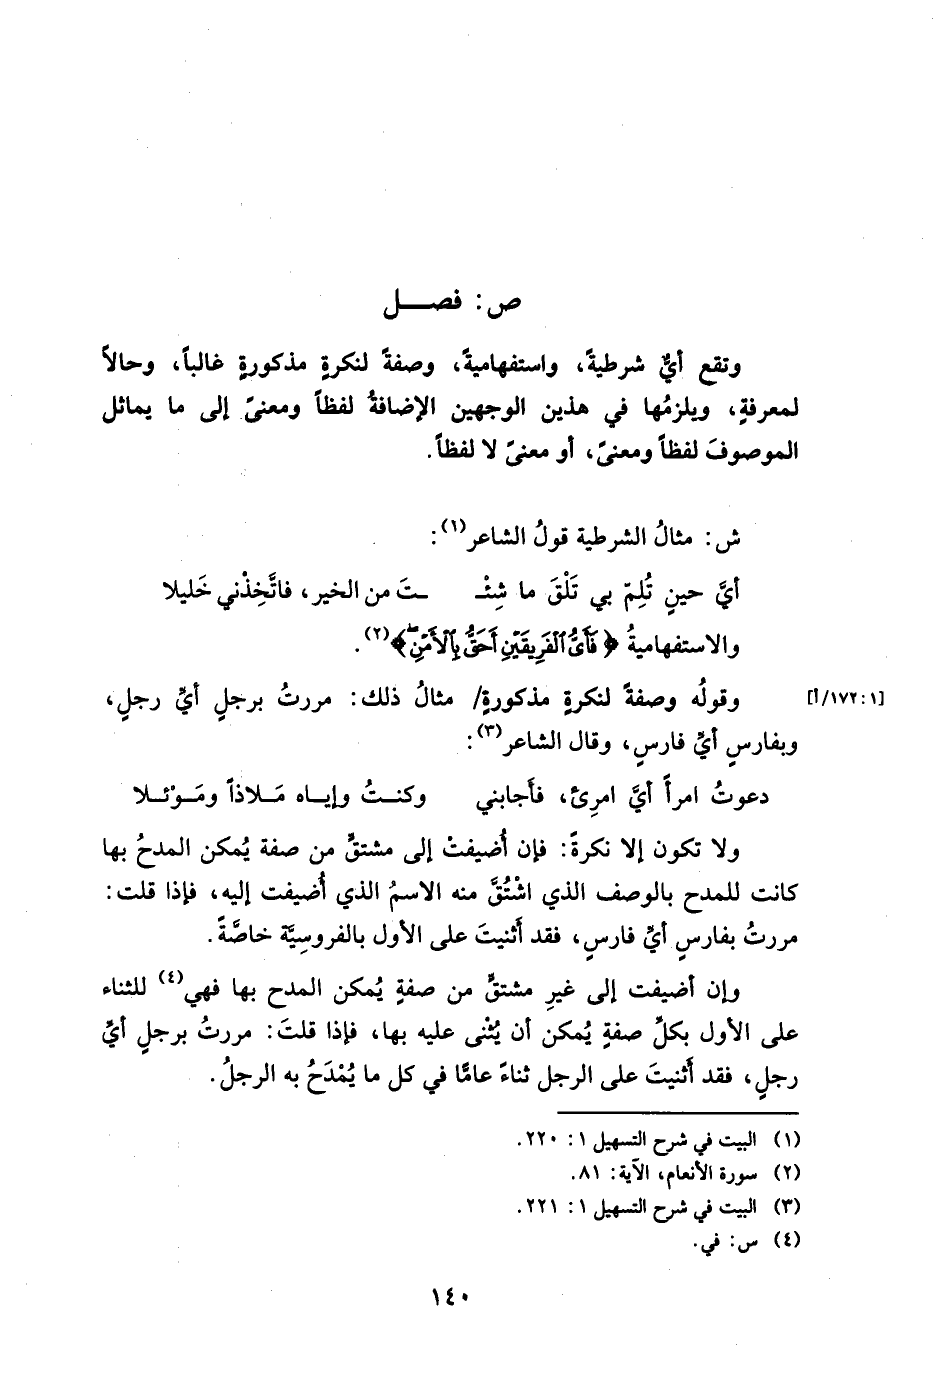 ص: فصـــل
وتقع أيٌّ شرطيةً، واستفهاميةً، وصفةً لنكرةٍ مذكورةٍ غالباً، وحالاً
لمعرفةٍ، ويلزمُها في هذين الوجهين الإضافةُ لفظاً ومعنىً إلى ما يماثل
الموصوفَ لفظاً ومعنىً، أو معنىً لا لفظاً.
ش: مثالُ الشرطية قولُ الشاعر(١):
أيَّ حينٍ تُلِمّ بي تَلْقَ ما شِئْـ ـتَ من الخير، فاتَّخِذْني خَليلا
والاستفهاميةُ ﴿فَأَىُّ ٱلْفَرِيقَيْنِ أَحَقُّ بِٱلْأَمْنِ﴾(٢).
وقولُه وصفةً لنكرةٍ مذكورةٍ/ مثالُ ذلك: مررتُ برجلٍ أيِّ رجلٍ، [١:١٧٢/أ]
وبفارسٍ أيِّ فارسٍ، وقال الشاعر(٣):
دعوتُ امرأً أيَّ امرِئ، فأجابني وكنــتُ وإيــاه مَـلاذاً ومَـوْئـلا
ولا تكون إلا نكرةً: فإن أُضيفتْ إلى مشتقٍّ من صفة يُمكن المدحُ بها
كانت للمدح بالوصف الذي اشْتُقَّ منه الاسمُ الذي أُضيفت إليه، فإذا قلت:
مررتُ بفارسٍ أيِّ فارسٍ، فقد أَثنيتَ على الأول بالفروسِيَّة خاصَّةً.
وإن أضيفت إلى غيرِ مشتقٍّ من صفةٍ يُمكن المدح بها فهي(٤) للثناء
على الأول بكلِّ صفةٍ يُمكن أن يُثْنى عليه بها، فإذا قلتَ: مررتُ برجلٍ أيِّ
رجلٍ، فقد أَثنيتَ على الرجل ثناءً عامًّا في كل ما يُمْدَحُ به الرجلُ.
(١) البيت في شرح التسهيل ١: ٢٢٠.
(٢) سورة الأنعام، الآية: ٨١.
(٣) البيت في شرح التسهيل ١: ٢٢١.
(٤) س: في.
١٤٠